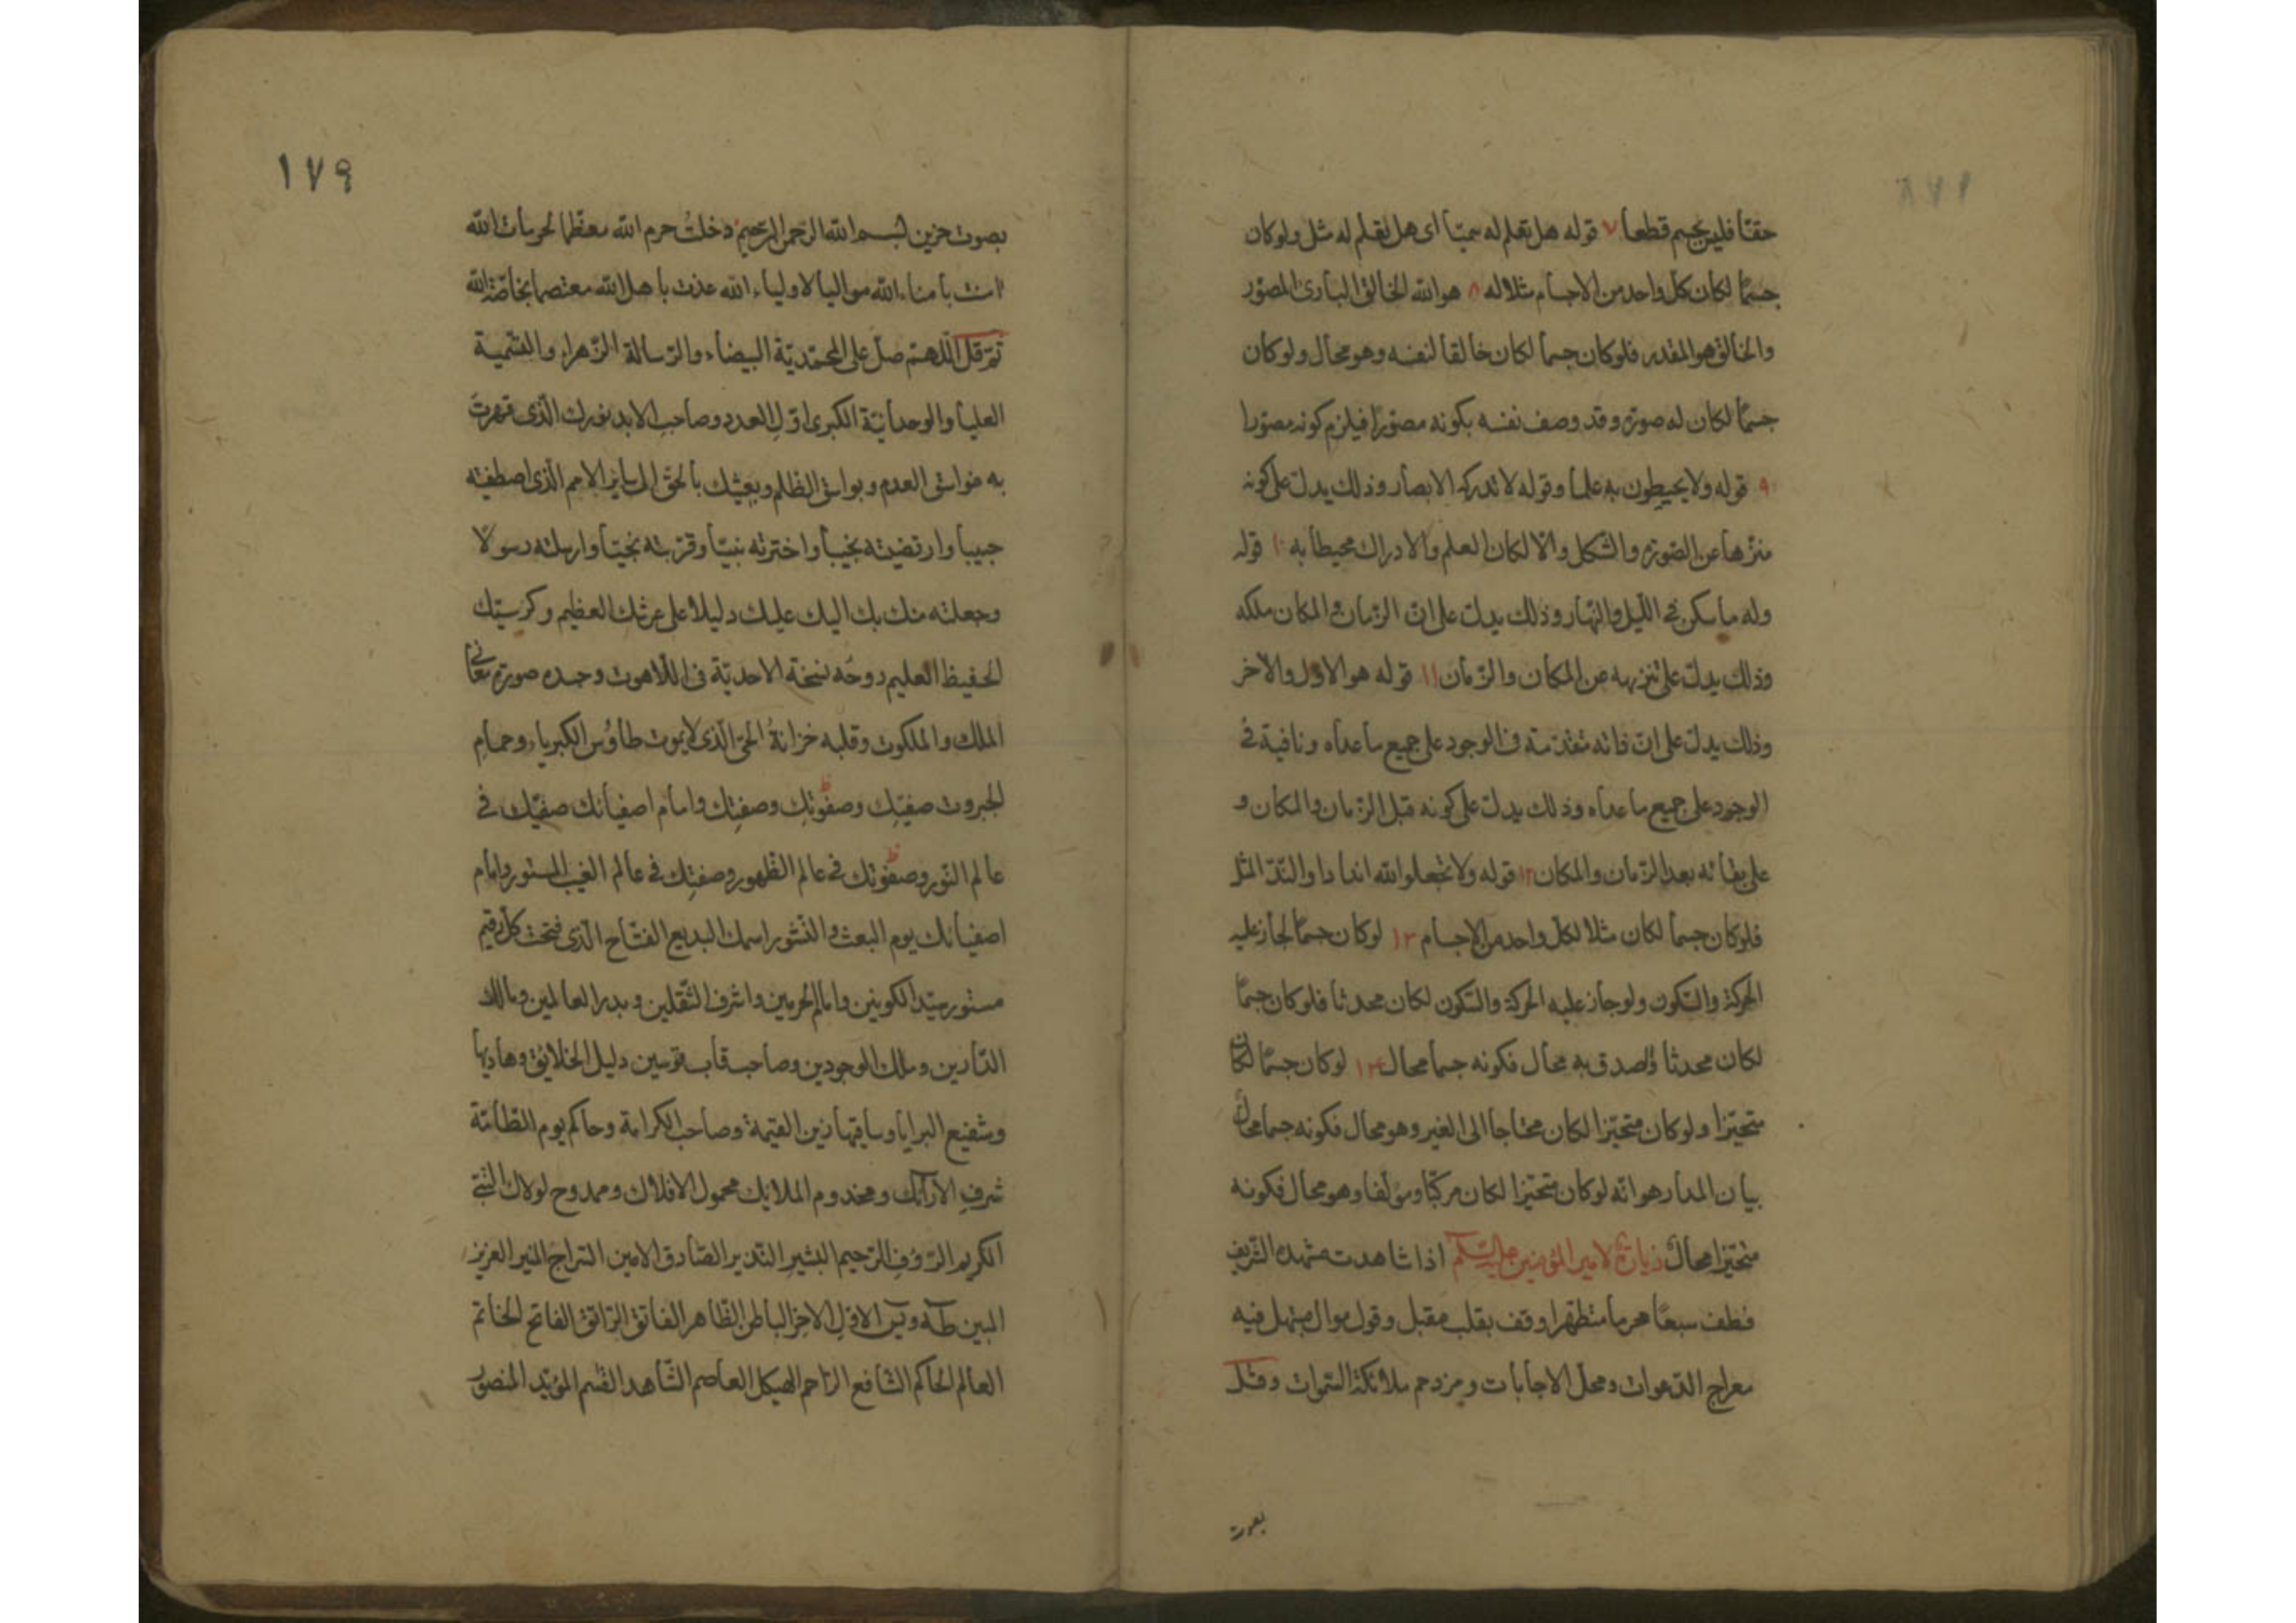 ١٧٨
حقّا فليس بجسم قطعا ٧ قوله هل تعلم له سميّا اى هل تعلم له مثل ولو كان
جسمًا لكان كل واحد من الاجسام مثلا له ٨ هو الله الخالق البارئ المصوّر
والخالق هو المقدر فلو كان جسما لكان خالقا لنفسه وهو محال ولو كان
جسمًا لكان له صورة وقد وصف نفسه بكونه مصوّرا فيلزم كونه مصوّرا
٩ قوله ولا يحيطون به علما وقوله لا تدركه الابصار وذلك يدلّ على كونه
منزّها عن الصّورة والشّكل والّا لكان العلم والادراك محيطا به ١٠ قوله
وله ما سكن فى اللّيل والنّهار وذلك يدلّ على انّ الزّمان والمكان ملكه
وذلك يدلّ على تنزيهه عن المكان والزّمان ١١ قوله هو الاوّل والآخر
وذلك يدلّ على انّ ذاته متقدّمة فى الوجود على جميع ما عداه و نافية فى
الوجود على جميع ما عداه وذلك يدلّ على كونه قبل الزّمان والمكان و
على بقائه بعد الزّمان والمكان ١٢ قوله ولا تجعلوا لله اندادا والنّدّ المثل
فلو كان جسما لكان مثلا لكل واحد من الاجسام ١٣ لو كان جسمًا لجاز عليه
الحركة والسّكون ولو جاز عليه الحركة والسّكون لكان محدثا فلو كان جسمًا
لكان محدثا والصدق به محال فكونه جسما محال ١٤ لو كان جسمًا لكان
متحيّزا ولو كان متحيّزا لكان محتاجا الى الغير وهو محال فكونه جسما محال
بيان المدار هو انّه لو كان متحيّزا لكان مركّبا ومؤلّفا وهو محال فكونه
متحيّزا محال زيارة لامير المؤمنين عليه السّلم اذا شاهدت مشهده الشّريف
فطف سبعًا محرما متطهّرا وقف بقلب مقبل وقول موال مبتهل فيه
معراج الدّعوات ومحلّ الاجابات ومزدحم ملائكة السّموات وقل
بصوت
١٧٩
بصوت حزين بسم الله الرّحمن الرّحيم دخلتُ حرم الله معظّما لحرمات الله
امنت بامناء الله مواليا لاولياء الله عذت باهل الله معتصما بخاصّة الله
ثمّ قل اللّهمّ صلّ على المحمّديّة البيضاء والرّسالة الزّهراء والقسمية
العليا والوحدانيّة الكبرى اوّل العدد وصاحب الابد نورك الّذى قهرت
به غواسق العدم وبواسق الظلم وبعثك بالحقّ الى سائر الامم الّذى اصطفيته
حبيبا وارتضيته نجيبا واخترته نبيّا وقرّبته نجيّا وارسلته رسولًا
وجعلته منك بك اليك عليك دليلا على عرشك العظيم وكرسيّك
الحفيظ العليم روحُه نسخة الاحديّة فى اللّاهوت وجسده صورة معانى
الملك والملكوت وقلبه خزانةُ الحىّ الّذى لا يموت طاوُس الكبرياء وحمام
الجبروت صفيّك وصفوتك وصفيّك وامام اصفيائك صفيّك فى
عالم النّور وصفوتك فى عالم الظّهور وصفيّك فى عالم الغيب المستور وامام
اصفيائك يوم البعث والنّشور اسمك البديع الفتّاح الّذى فتحت كلّ رقيم
مستور سيّد الكونين وامام الحرمين واشرف الثّقلين وبدر العالمين ومالك
الدّارين وملك الوجودين وصاحب قاب قوسين دليل الخلائق وهاديها
وشفيع البرايا وساقيها زين القيمة وصاحب الكرامة وحاكم يوم الطّامّة
شرف الارآئك ومخدوم الملايك محمول الافلاك وممدوح لولاك النّبىّ
الكريم الرّؤوف الرّحيم البشير النّذير الصّادق الامين السّراج المنير العزيز
المبين طه ويس الاوّل الآخر الباطن الظّاهر الفاتق الرّاتق الفاتح الخاتم
العالم الحاكم الشّافع الرّاحم الهيكل العاصم الشّاهد القثم المؤيّد المنصور